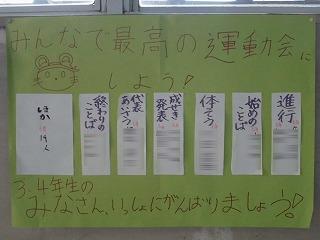 みんなで最高の運動会に
しよう!
進行
始めの
ことば
体そう
成せき
発表
代表
あいさつ
終わりの
ことば
ほか
3.4年生の
みなさん、いっしょにがんばりましょう!